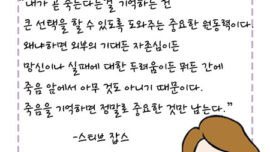 "내가 곧 죽는다는걸 기억하는 건
큰 선택을 할 수 있도록 도와주는 중요한 원동력이다.
왜냐하면 외부의 기대든 자존심이든
망신이나 실패에 대한 두려움이든 뭐든 간에
죽음 앞에서 아무 것도 아니기 때문이다.
죽음을 기억하면 정말로 중요한 것만 남는다."
-스티브 잡스